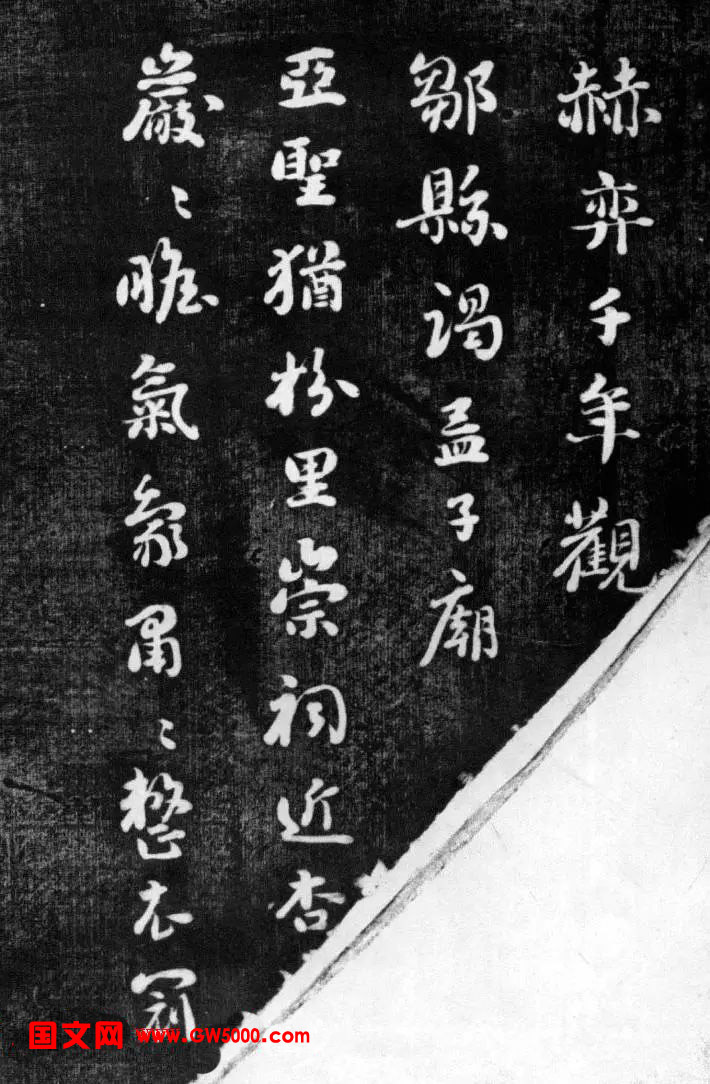 赫弈千年觀
鄒縣謁孟子廟
亞聖猶枌里崇祠近杏
巖〻瞻氣象肅〻整衣冠
国文网 www.GW5000.com